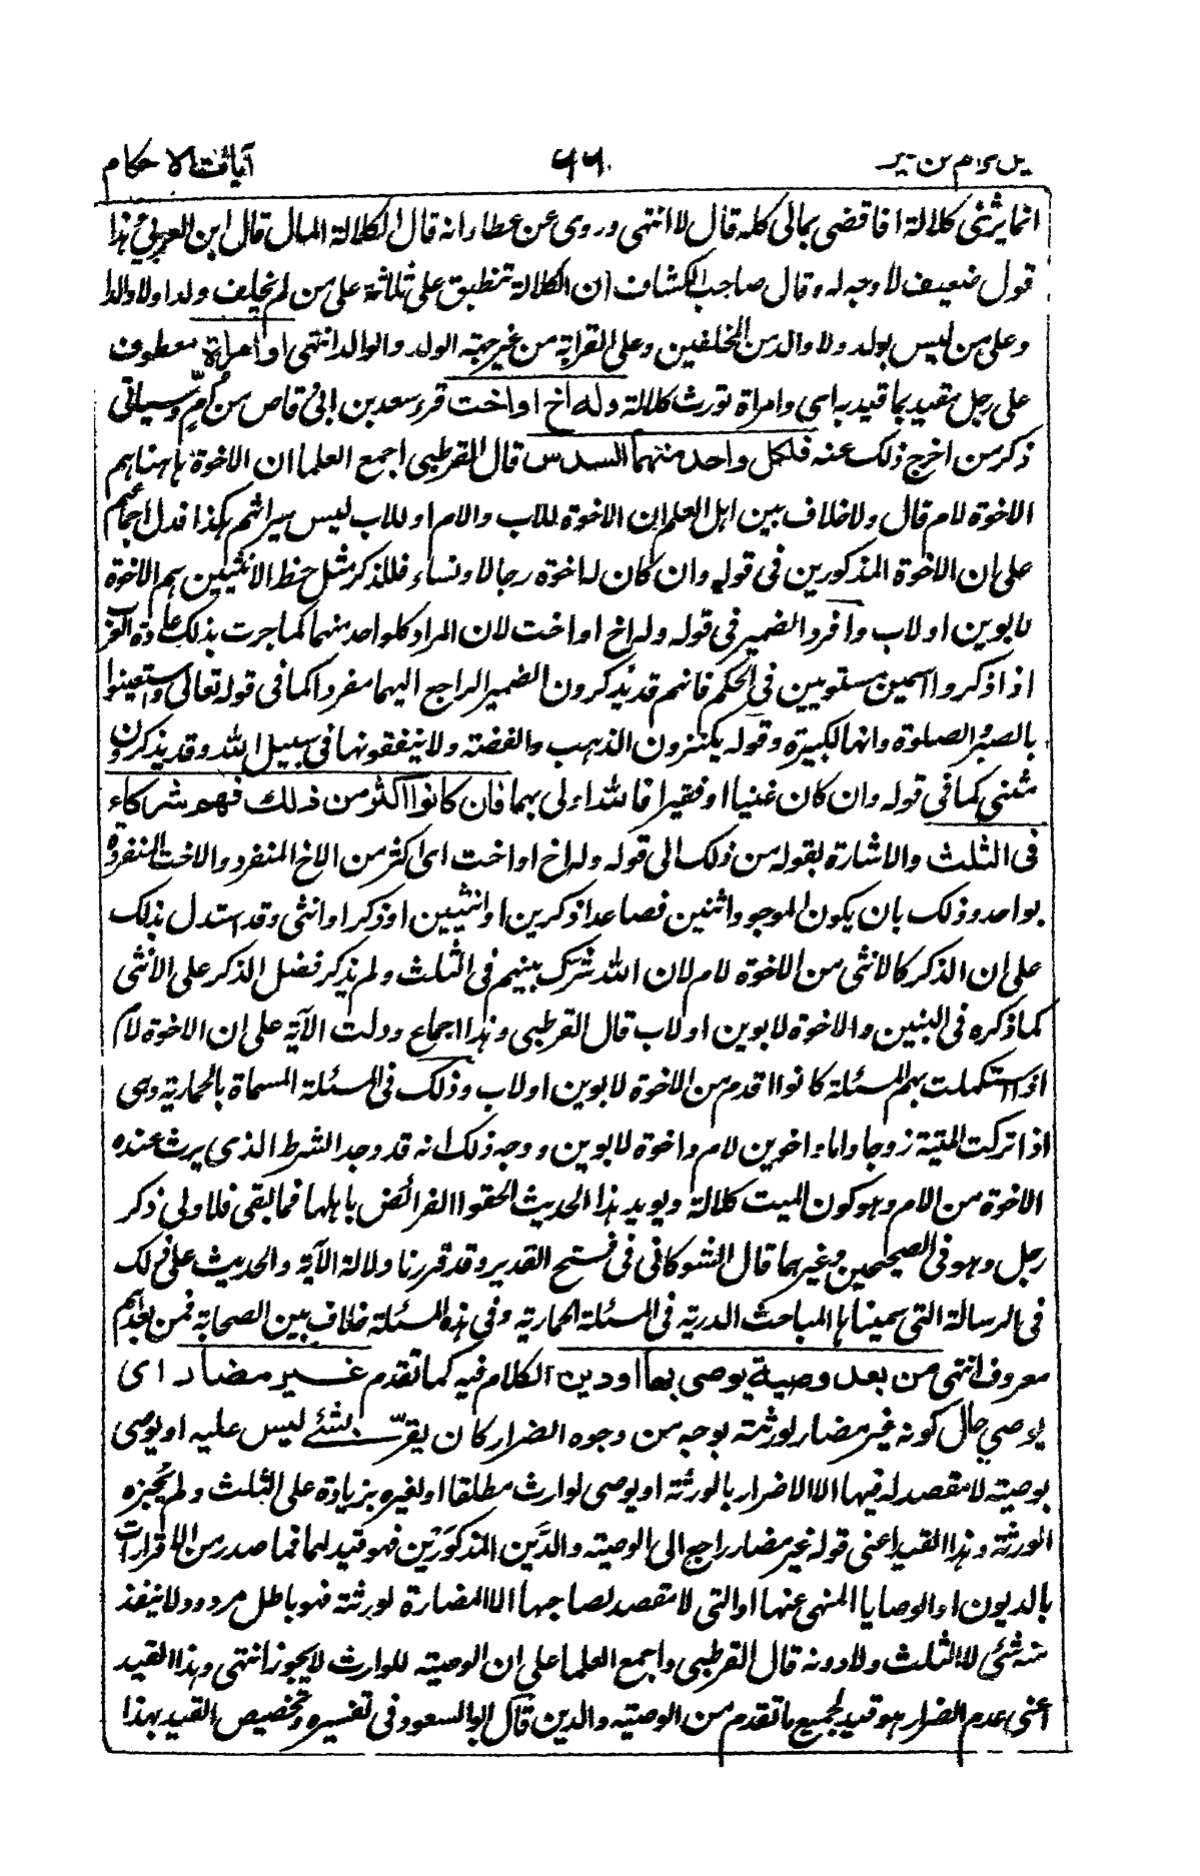 نيل المرام من تفسير ٦٦ آيات الاحكام
انما يرثني كلالة افاقضى بمالى كله قال لا انتهى وروى عن عطا انه قال الكلالة المال قال ابن العربي وهذا
قول ضعيف لا وجه له وقال صاحب الكشاف ان الكلالة تنطبق على ثلثة على من لم يخلف ولدا ولا والدا
وعلى من ليس بولد ولا والد من المخلفين وعلى القرابة من غير جهة الولد والوالد انتهى او امراة معطوف
على رجل مقيد بما قيد به اى وامراة تورث كلالة وله اخ او اخت قرء سعد بن ابي وقاص من اُمٍّ وسياتى
ذكر من اخرج ذلك عنه فلكل واحد منهما السدس قال القرطبى اجمع العلما ان الاخوة ها هنا هم
الاخوة لام قال ولا خلاف بين اهل العلم ان الاخوة للاب والام او للاب ليس ميراثهم هكذا فدل اجماعهم
على ان الاخوة المذكورين فى قوله وان كان له اخوة رجالا ونساء فللذكر مثل حظ الانثيين هم الاخوة
لابوين او لاب وافرد الضمير فى قوله وله اخ او اخت لان المراد كل واحد منهما كما جرت بذلك عادة العرب
اذا ذكروا اسمين مستويين فى الحكم فانهم قد يذكرون الضمير الراجع اليهما مفردا كما فى قوله تعالى واستعينوا
بالصبر والصلوة وانها لكبيرة وقوله يكنزون الذهب والفضة ولا ينفقونها فى سبيل الله وقد يذكرون
مثنى كما فى قوله وان كان غنيا او فقيرا فالله اولى بهما فان كانوا اكثر من ذلك فهم شركاء
فى الثلث والاشارة بقوله من ذلك الى قوله وله اخ او اخت اى اكثر من الاخ المنفرد والاخت المنفردة
بواحد وذلك بان يكون الموجود اثنين فصاعدا ذكرين او انثيين او ذكرا وانثى وقد استدل بذلك
على ان الذكر كالانثى من الاخوة لام لان الله شرّك بينهم فى الثلث ولم يذكر فضل الذكر على الانثى
كما ذكره فى البنين والاخوة لابوين او لاب قال القرطبى وهذا اجماع ودلت الآية على ان الاخوة لام
اذا استكملت بهم المسئلة كانوا اقدم من الاخوة لابوين او لاب وذلك فى المسئلة المسماة بالحمارية وهى
اذا تركت الميتة زوجا واما واخوين لام واخوة لابوين ووجه ذلك انه قد وجد الشرط الذى يرث عنده
الاخوة من الام وهو كون الميت كلالة ويويد هذا الحديث الحقوا الفرائض باهلها فما بقى فلاولى ذكر
رجل وهو فى الصحيحين وغيرهما قال الشوكانى فى فتح القدير وقد قررنا دلالة الآية والحديث على ذلك
فى الرسالة التى سميناها المباحث الدرية فى المسئلة الحمارية وفى هذه المسئلة خلاف بين الصحابة فمن بعدهم
معروف انتهى من بعد وصية يوصى بها او دين الكلام فيه كما تقدم غير مضار اى
يوصي حال كونه غير مضار لورثته بوجه من وجوه الضرار كان يقرّ بشئ ليس عليه او يوصى
بوصية لا مقصد له فيها الا الاضرار بالورثة او يوصى لوارث مطلقا او لغيره بزيادة على الثلث ولم يُجِزه
الورثة وهذا القيد اعنى قوله غير مضار راجع الى الوصية والدَّين المذكورَين فهو قيد لهما فما صدر من الاقرارات
بالديون او الوصايا المنهى عنها او التى لا مقصد لصاحبها الا المضارة لورثته فهو باطل مردود لا ينفذ
منه شئ لا الثلث ولا دونه قال القرطبى واجمع العلما على ان الوصية للوارث لا يجوز انتهى وهذا القيد
أعنى عدم الضرار هو قيد لجميع ما تقدم من الوصية والدين قال ابو السعود فى تفسيره وتخصيص القيد بهذا